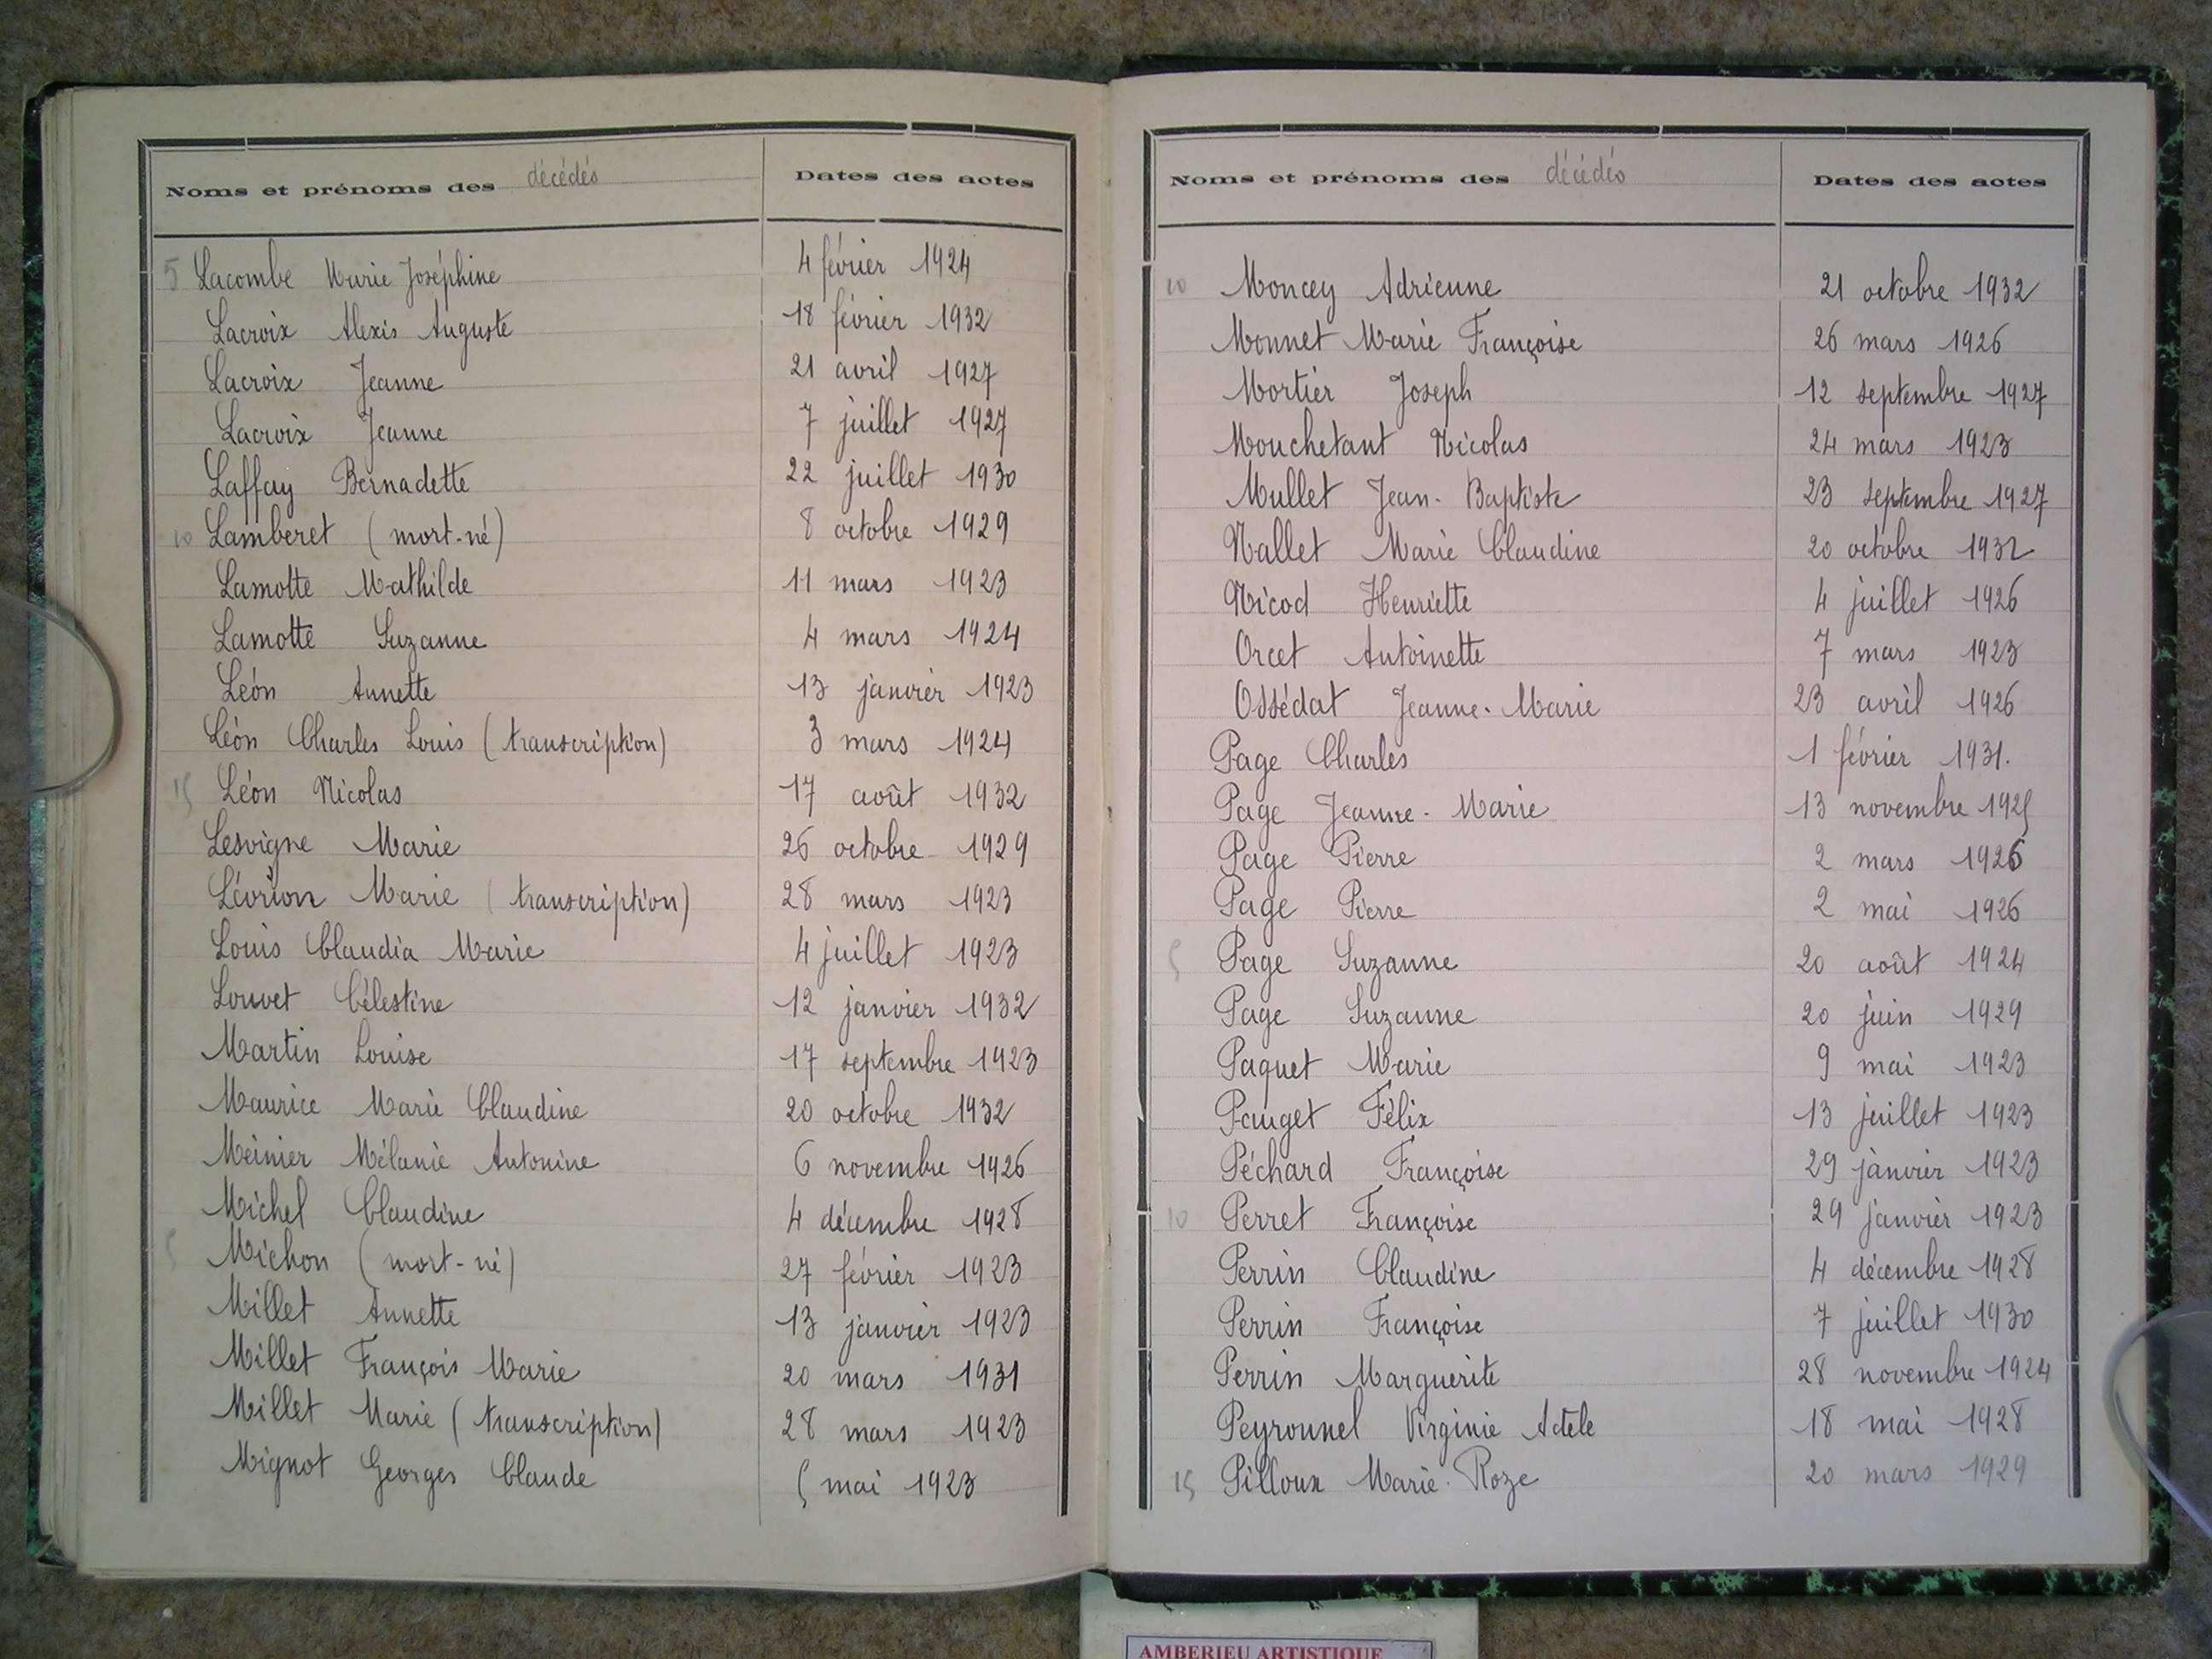 Noms et prénoms des décédés Dates des actes
5 Lacombe Marie Joséphine 4 février 1924
Lacroix Alexis Auguste 18 février 1932
Lacroix Jeanne 21 avril 1927
Lacroix Jeanne 7 juillet 1927
Laffay Bernadette 22 juillet 1930
10 Lamberet (mort-né) 8 octobre 1929
Lamotte Mathilde 11 mars 1923
Lamotte Suzanne 4 mars 1924
Léon Annette 13 janvier 1923
Léon Charles Louis (transcription) 3 mars 1924
15 Léon Nicolas 17 août 1932
Lesvigne Marie 26 octobre 1929
Lévrion Marie (transcription) 28 mars 1923
Louis Claudia Marie 4 juillet 1923
Louvet Célestine 12 janvier 1932
Martin Louise 17 septembre 1923
Maurice Marie Claudine 20 octobre 1932
Meinier Mélanie Antonine 6 novembre 1926
Michel Claudine 4 décembre 1928
5 Michon (mort-né) 27 février 1923
Millet Annette 13 janvier 1923
Millet François Marie 20 mars 1931
Millet Marie (transcription) 28 mars 1923
Mignot Georges Claude 5 mai 1923
Noms et prénoms des décédés Dates des actes
10 Moncey Adrienne 21 octobre 1932
Monnet Marie Françoise 26 mars 1926
Mortier Joseph 12 septembre 1927
Mouchetant Nicolas 24 mars 1923
Mullet Jean-Baptiste 23 septembre 1927
Nallet Marie Claudine 20 octobre 1932
Nicod Henriette 4 juillet 1926
Orcet Antoinette 7 mars 1923
Ossédat Jeanne-Marie 23 avril 1926
Page Charles 1 février 1931.
Page Jeanne-Marie 13 novembre 1925
Page Pierre 2 mars 1926
Page Pierre 2 mai 1926
5 Page Suzanne 20 août 1924
Page Suzanne 20 juin 1929
Paquet Marie 9 mai 1923
Pauget Félix 13 juillet 1923
Péchard Françoise 29 janvier 1923
10 Perret Françoise 29 janvier 1923
Perrin Claudine 4 décembre 1928
Perrin Françoise 7 juillet 1930
Perrin Marguerite 28 novembre 1924
Peyrounel Virginie Adèle 18 mai 1928
15 Pilloux Marie-Roze 20 mars 1929
AMBERIEU ARTISTIQUE